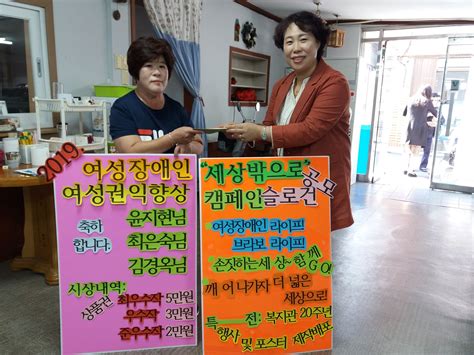 2019
여성장애인
여성권익향상
축하
합니다.
윤지현님
최은숙님
김경옥님
시상내역:
상품권
최우수작 5만원
우수작 3만원
준우수작 2만원
"세상밖으로" 공모
캠페인슬로건
여성장애인 라이프
브라보 라이프
손짓하는세상~함께
GO!
깨어나가자 더 넓은
세상으로!
특전: 복지관 20주년
행사 및 포스터 제작배포
FILA